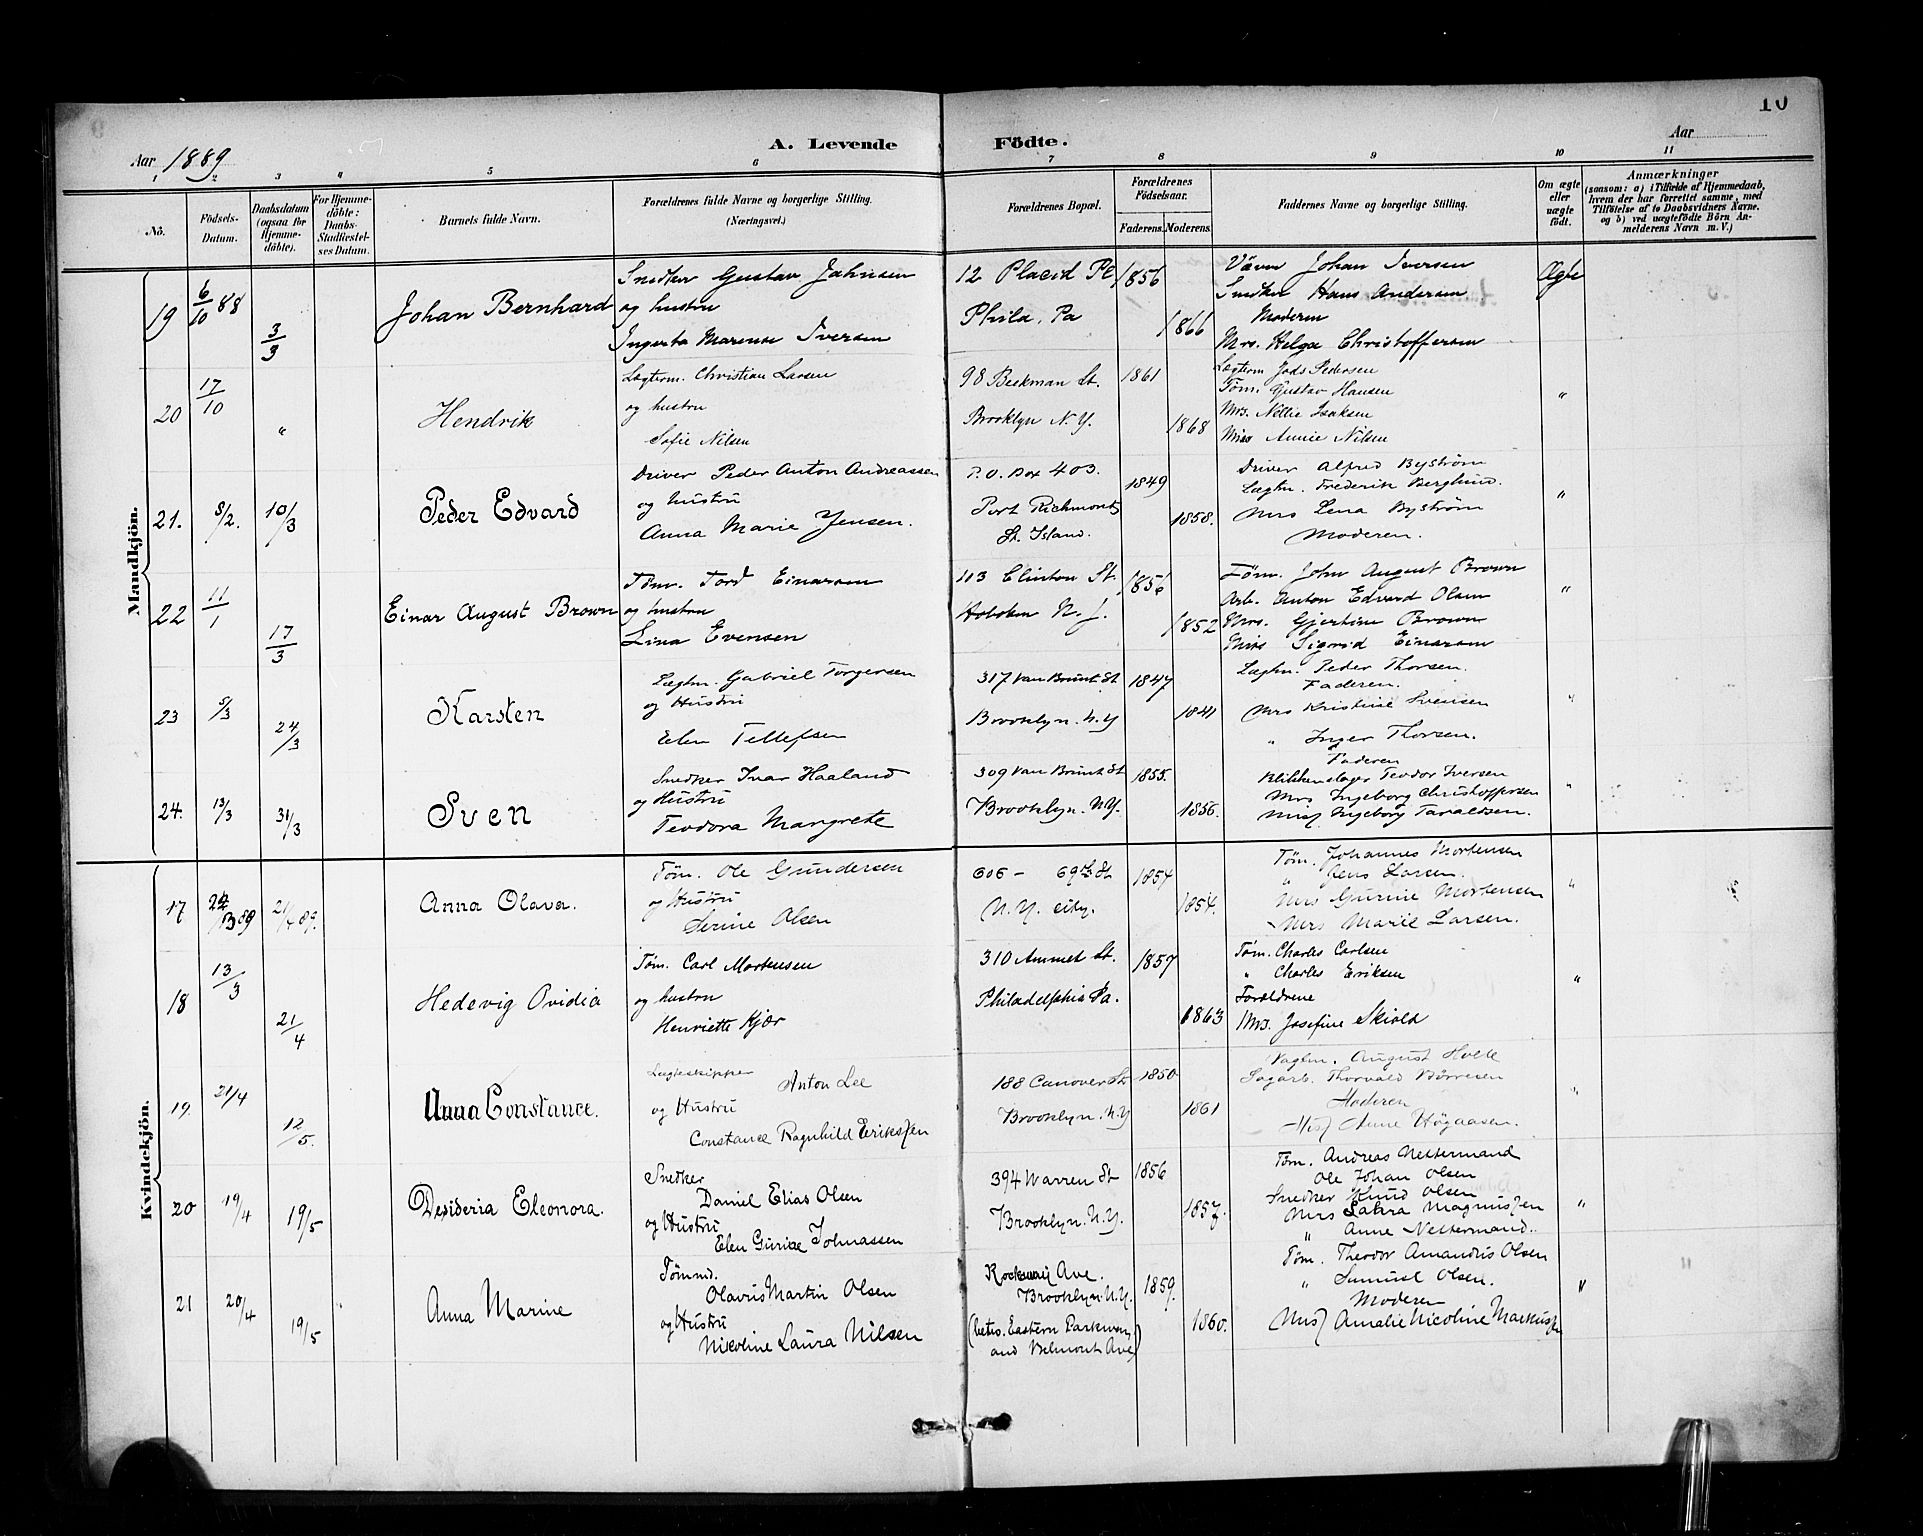 10
A. Levende Födte.
Aar 1889
Aar
1 2 3 4 5 6 7 8 9 10 11
No.
Födsels-Datum.
Daabsdatum (ogsaa for Hjemmedöbte).
For Hjemmedöbte: Daabs-Stadfæstelses Datum.
Barnets fulde Navn.
Forældrenes fulde Navne og borgerlige Stilling.
(Næringsvei.)
Forældrenes Bopæl.
Forældrenes Födselsaar.
Faderens. Moderens.
Faddernes Navne og borgerlige Stilling.
Om ægte eller uægte födt.
Anmærkninger
(saasom: a) i Tilfælde af Hjemmedaab, hvem der har forrettet samme, med Tilföielse af to Daabsvidners Navne. og b) ved uægtefödte Börn Anmelderens Navn m. V.)
Mandkjön.
19 6/10 88 3/3
Johan Bernhard
Snedker Gustav Jahnsen
og hustru
Ingerta Marense Iversen
12 Placid Pl
Phila, Pa
1856 1866
Væver Johan Iversen
Snedker Hans Andersen
Moderen
Mrs. Helga Christoffersen
Ægte
20 17/10 "
Hendrik
Lægterm. Christian Larsen
og hustru
Sofie Nilsen
98 Beekman St.
Brooklyn N.Y.
1861 1868
Lægterm Pedersen
Töm. Gustav Hansen
Mrs. Nellie Isaksen
Miss Annie Nilsen
"
21. 5/2. 10/3
Peder Edvard
Driver Peder Anton Andreassen
og hustru
Anna Marie Jensen.
P.O. Box 403.
Port Richmond
St. Island.
1849 1858.
Driver Alfred Byström
Lægtm. Frederik Berglund.
Mrs Lena Byström
Moderen.
"
22 11/1 17/3
Einar August Brown
Töm. Tord Einarsen
og hustru
Lina Evensen
113 Clinton St.
Hoboken N. J.
1856 1852
Töm. John August Brown
Arb. Anton Edvard Olsen
Mrs. Gjertine Brown
Miss Sigrid Einarsen
"
23 5/3 24/3
Karsten
Lægtm. Gabriel Torgersen
og Hustru
Elen Tellefsen
317 Van Brunt St
Brooklyn. N.Y
1847 1841
Lægtm. Peder Thorsen.
Faderen.
Mrs Kristine Svensen
" Inger Thorsen.
"
24. 13/3 31/3
Sven
Snedker Ivar Haaland
og Hustru
Teodora Margrete
309 Van Brunt St
Brooklyn. N.Y.
1855. 1856.
Faderen
Blikkenslager Teodor Iversen
Mrs Ingeborg Christoffersen
Miss Ingeborg Taraldsen.
"
Kvindekjön.
17 89 21/4 89.
Anna Olava.
Töm. Ole Gundersen
og Hustru
Serine Olsen
606 - 69th St
N.Y. city.
1854 1854.
Töm. Johannes Mortensen
" Jens Larsen.
Mrs Gurine Mortensen
Mrs Marie Larsen.
"
18 13/3 21/4
Hedevig Ovidia
Töm. Carl Mortensen
og hustru
Henriette Kjær
310 Ammet St.
Philadelphia Pa.
1857 1863
Töm. Charles Carlsen
" Charles Eriksen
Forældrene
Mrs. Josefine Skiold
"
19. 21/4 12/5.
Anna Constance.
Lægteskipper Anton Lee
og Hustru
Constance Ragnhild Eriksen
188 Conover St.
Brooklyn. N.Y
1850 1861
Vagtm. August Holte
Sagarb. Thorvald Börresen
Moderen
Miss Anne Högaasen.
"
20 19/4 19/5
Desideria Eleonora.
Snedker
Daniel Elias Olsen
og Hustru
Elen Gurine Johnassen
394 Warren St
Brooklyn. N.Y.
1856 1857.
Töm. Andreas Nettermand
Ole Johan Olsen
Snedker Knud Olsen
Mrs Laura Magnussen
" Anne Nettermand.
"
21 20/4 19/5 "
Anna Marine
Tömmd.
Olavus Martin Olsen
og Hustru
Nicoline Laura Nilsen
Rockway Ave.
Brooklyn. N.Y.
(betw. Eastern Parkway
and Belmont Ave)
1859. 1860.
Töm. Theodor Amandus Olsen
" Samuel Olsen.
Moderen
Miss Amalie Nicoline Markussen
"